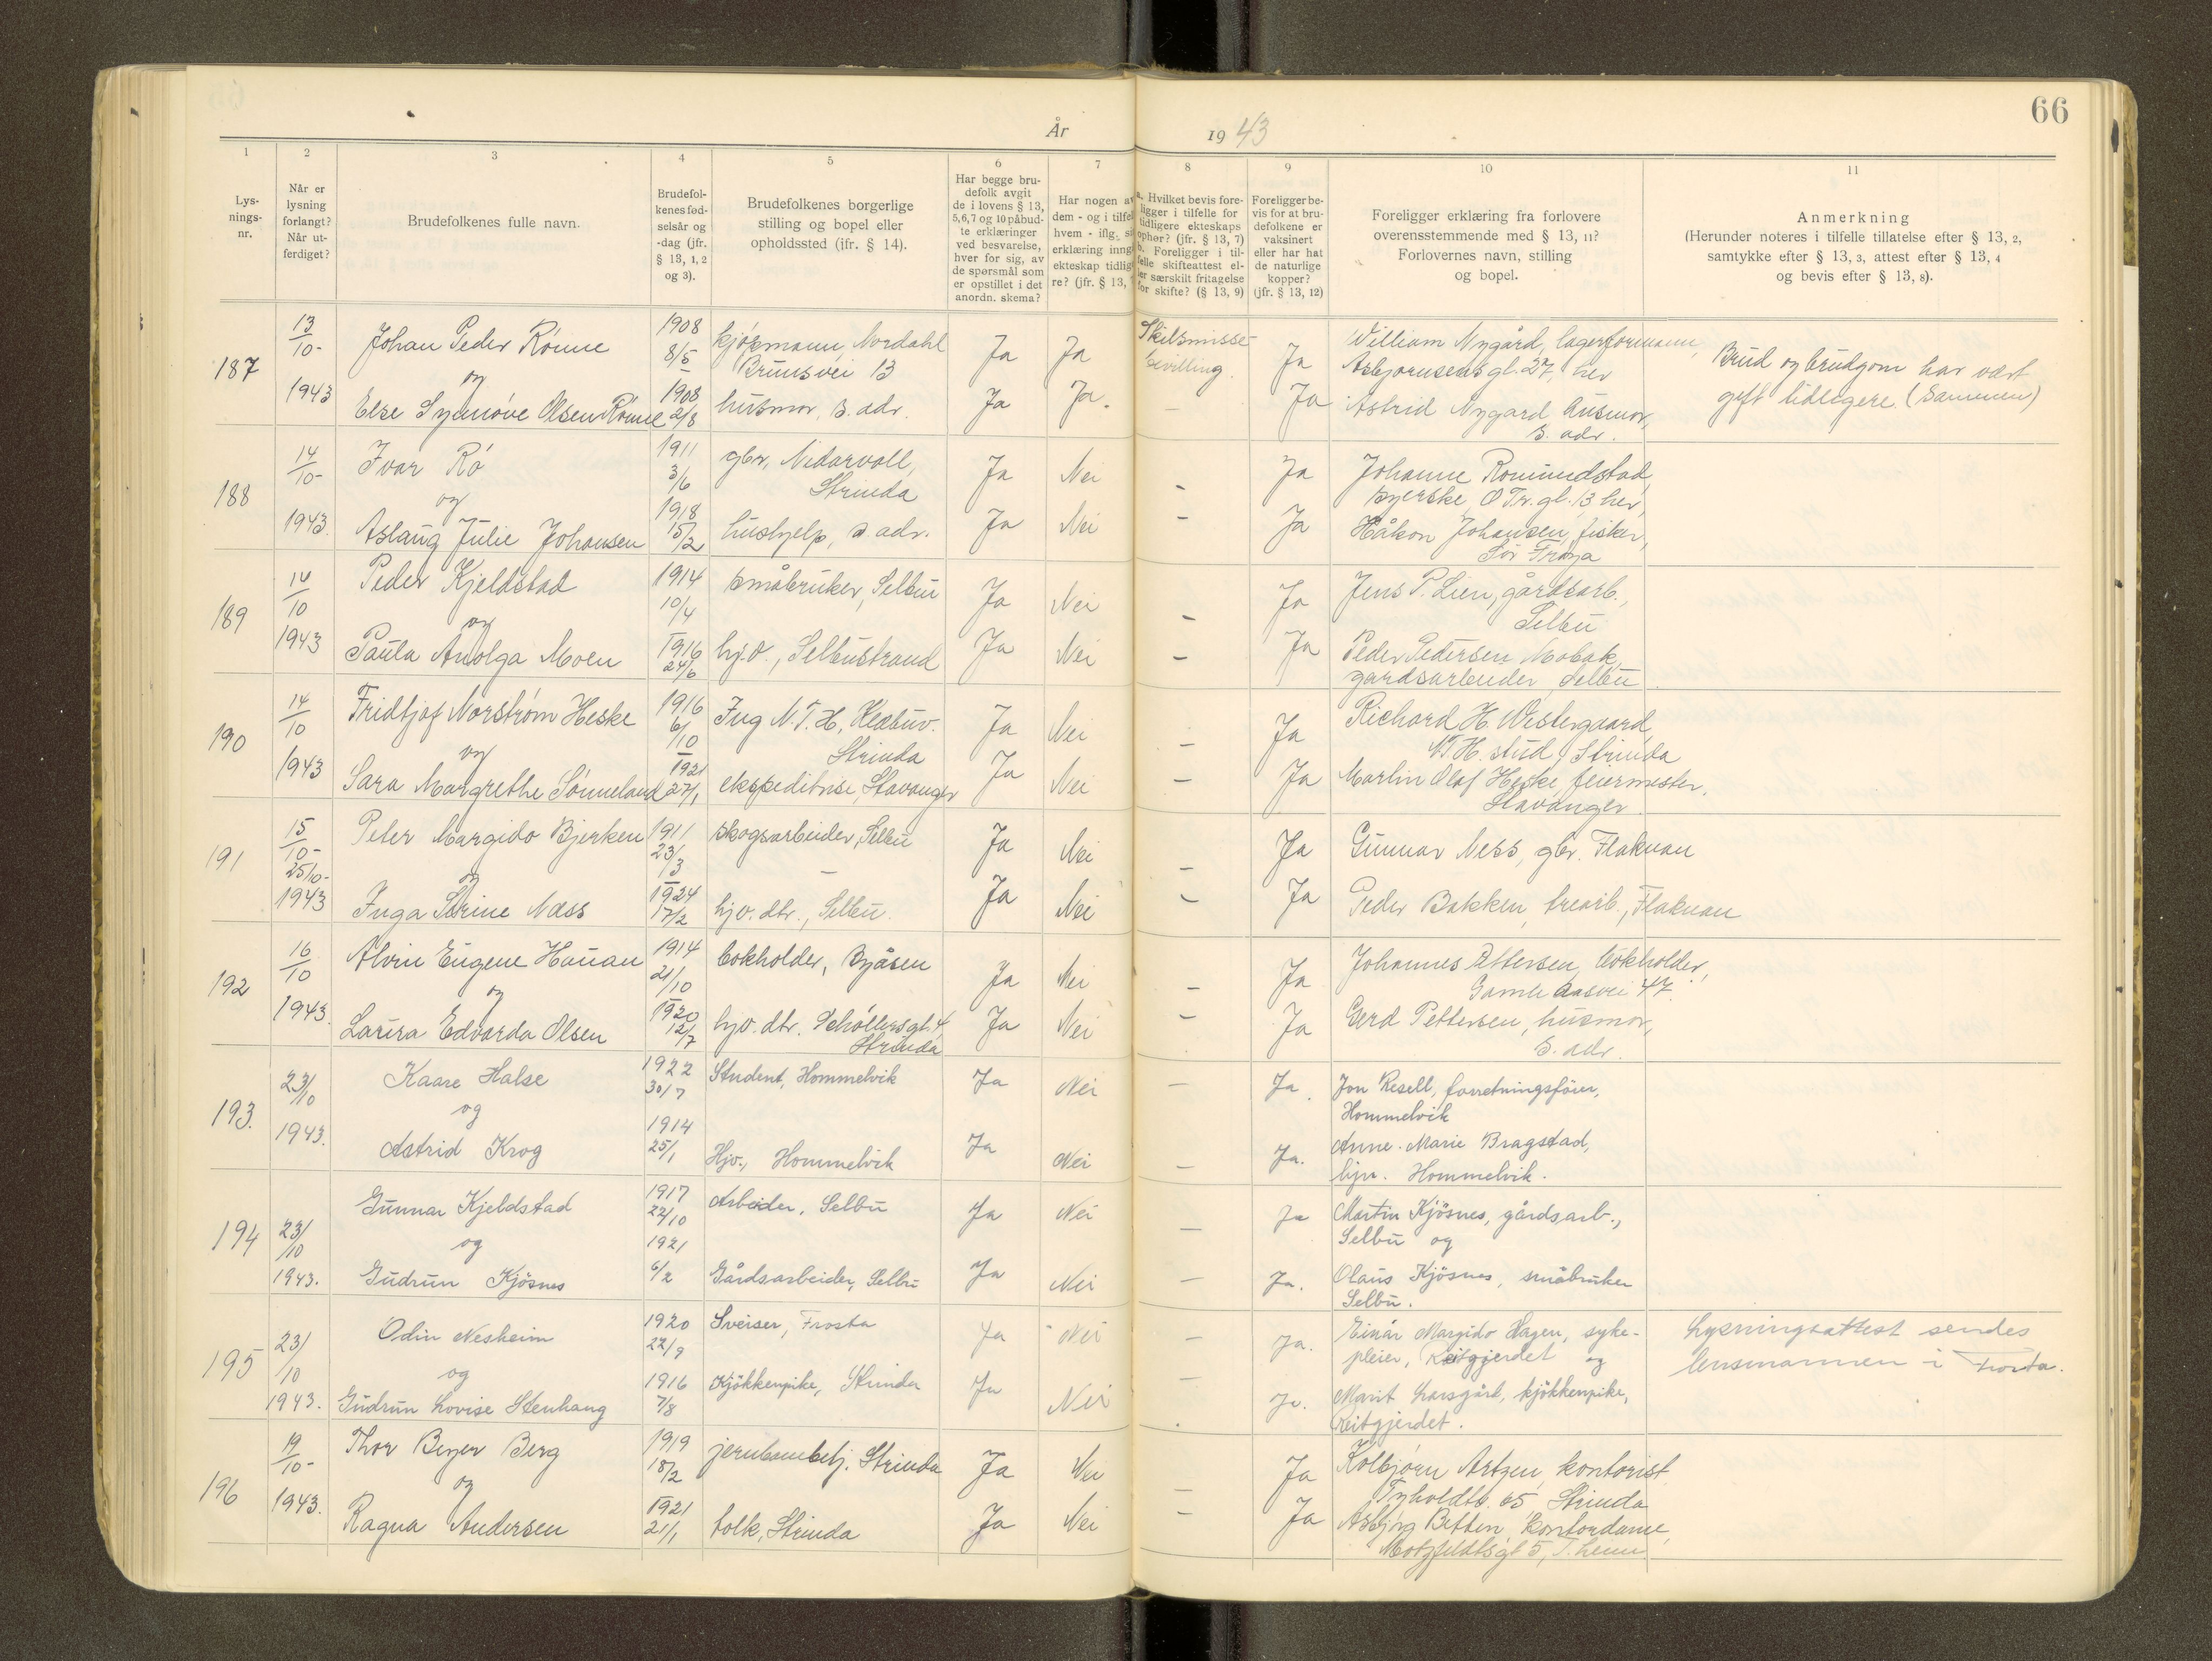 66
År 1943
1 2 3 4 5 6 7 8 9 10 11
Lys-
nings-
nr.
Når er
lysning
forlangt?
Når ut-
ferdiget?
Brudefolkenes fulle navn.
Brudefol-
kenes fød-
selsår og
-dag (jfr.
§ 13, 1, 2
og 3).
Brudefolkenes borgerlige
stilling og bopel eller
opholdssted (jfr. § 14).
Har begge bru-
defolk avgit
de i lovens § 13,
5, 6, 7 og 10 påbud-
te erklæringer
ved besvarelse,
hver for sig, av
de spørsmål som
er opstillet i det
anordn. skema?
Har nogen av
dem - og i tilfel
hvem - iflg. s
erklæring inng
ekteskap tidlig
re? (jfr. § 13,
a. Hvilket bevis fore-
ligger i tilfelle for
tidligere ekteskaps
ophør? (jfr. § 13, 7)
b. Foreligger i til-
felle skifteattest el-
ler særskilt fritagelse
for skifte? (§ 13, 9)
Foreligger be-
vis for at bru-
defolkene er
vaksinert
eller har hat
de naturlige
kopper?
(jfr. § 13, 12)
Foreligger erklæring fra forlovere
overensstemmende med § 13, 11?
Forlovernes navn, stilling
og bopel.
Anmerkning
(Herunder noteres i tilfelle tillatelse efter § 13, 2,
samtykke efter § 13, 3, attest efter § 13, 4
og bevis efter § 13, 8).
187 13/10- 1943
Johan Peder Rønne 1908 8/5 kjøpmann, Nordahl Brunsvei 13 Ja Ja Skilsmisse-bevilling. Ja William Nygård, lagerformann, Asbjørnsensgl. 27, her
og
Else Synnøve Olsen Rønne 1908 2/8 husmor, s. adr. Ja Ja. – Ja Astrid Nygård husmor, s. adr.
Brud og brudgom har vært gift tidligere. (Sammen)
188 14/10- 1943.
Ivar Rø 1911 3/6 gbr, Nidarvoll, Strinda Ja Nei – Ja Johanne Romundstad, syerske, O Tr. gl. 13 her,
og
Aslaug Julie Johansen 1918 15/2 hushjelp, s. adr. Ja Nei – Ja Håkon Johansen, fisker, Sør Frøya
189 14/10 1943
Peder Kjeldstad 1914 10/4 småbruker, Selbu Ja Nei – Ja Jens P. Lien, gårdsarb., Selbu
og
Paula Anolga Moen 1916 24/6 hj.v., Selbustrand Ja Nei – Ja Peder Pedersen Mobak, gardsarbeider, Selbu
190 14/10 1943
Fridtjof Norstrøm Heske 1916 6/10 Ing N.T.H, Strinda Ja Nei – Ja Richard H. Westergaard, NTH. stud, Strinda
og
Sara Margrethe Sønneland 1921 27/1 ekspeditrise, Stavanger Ja Nei – Ja Martin Olaf Heske, feiermester, Stavanger
191 15/10- 25/10- 1943
Peter Margido Bjerken 1911 23/3 skogsarbeider, Selbu Ja Nei – Ja Gunnar Ness, gbr. Flaknan
og
Inga Sørine Næss 1924 17/2 hjv. dtr., Selbu. Ja Nei – Ja Peder Bakken, trearb., Flaknan
192 16/10 1943.
Alvin Eugene Hauan 1914 21/10 bokholder, Byåsen Ja Nei – Ja Johannes Pettersen, bokholder, Gamle Aasvei 47.
og
Laura Edvarda Olsen 1920 12/7 hjv. dtr. Schøllersgt. 4, Strinda Ja Nei – Ja Gerd Pettersen, husmor, s. adr.
193. 23/10 1943.
Kaare Halse 1922 30/7 Student, Hommelvik Ja Nei – Ja. Jon Resell, forretningsfører, Hommelvik
og
Astrid Krog 1914 25/1 Hjv., Hommelvik Ja Nei – Ja. Anne-Marie Bragstad, hjv. Hommelvik.
194 23/10 1943.
Gunnar Kjeldstad 1917 22/10 Arbeider, Selbu Ja Nei – Ja Martin Kjösnes, gårdsarb., Selbu og
og
Gudrun Kjösnes 1921 6/2 Gårdsarbeider, Selbu Ja Nei – Ja. Olaus Kjösnes, småbruker Selbu.
195 23/10 1943.
Odin Nesheim 1920 22/9 Sveiser, Frosta Ja Nei – Ja. Einar Margido Hagen, syke-pleier, Reitgjerdet og
og
Gudrun Lovise Stenhaug 1916 7/8 Kjökkenpike, Strinda Ja Nei – Ja. Marit Larsgård, kjökkenpike, Reitgjerdet.
Lysningsattest sendes lensmannen i Frosta.
196 19/10- 1943.
Thor Beyer Berg 1919 18/2 jernbanebetj. Strinda Ja Nei – Ja Kolbjørn Artzen, kontorist Tyholdtv. 65, Strinda
og
Ragna Andersen 1921 21/1 tolk, Strinda Ja Nei – Ja Asbjørg Betten, kontordame, Motzfeldtsgt 5, T.heim